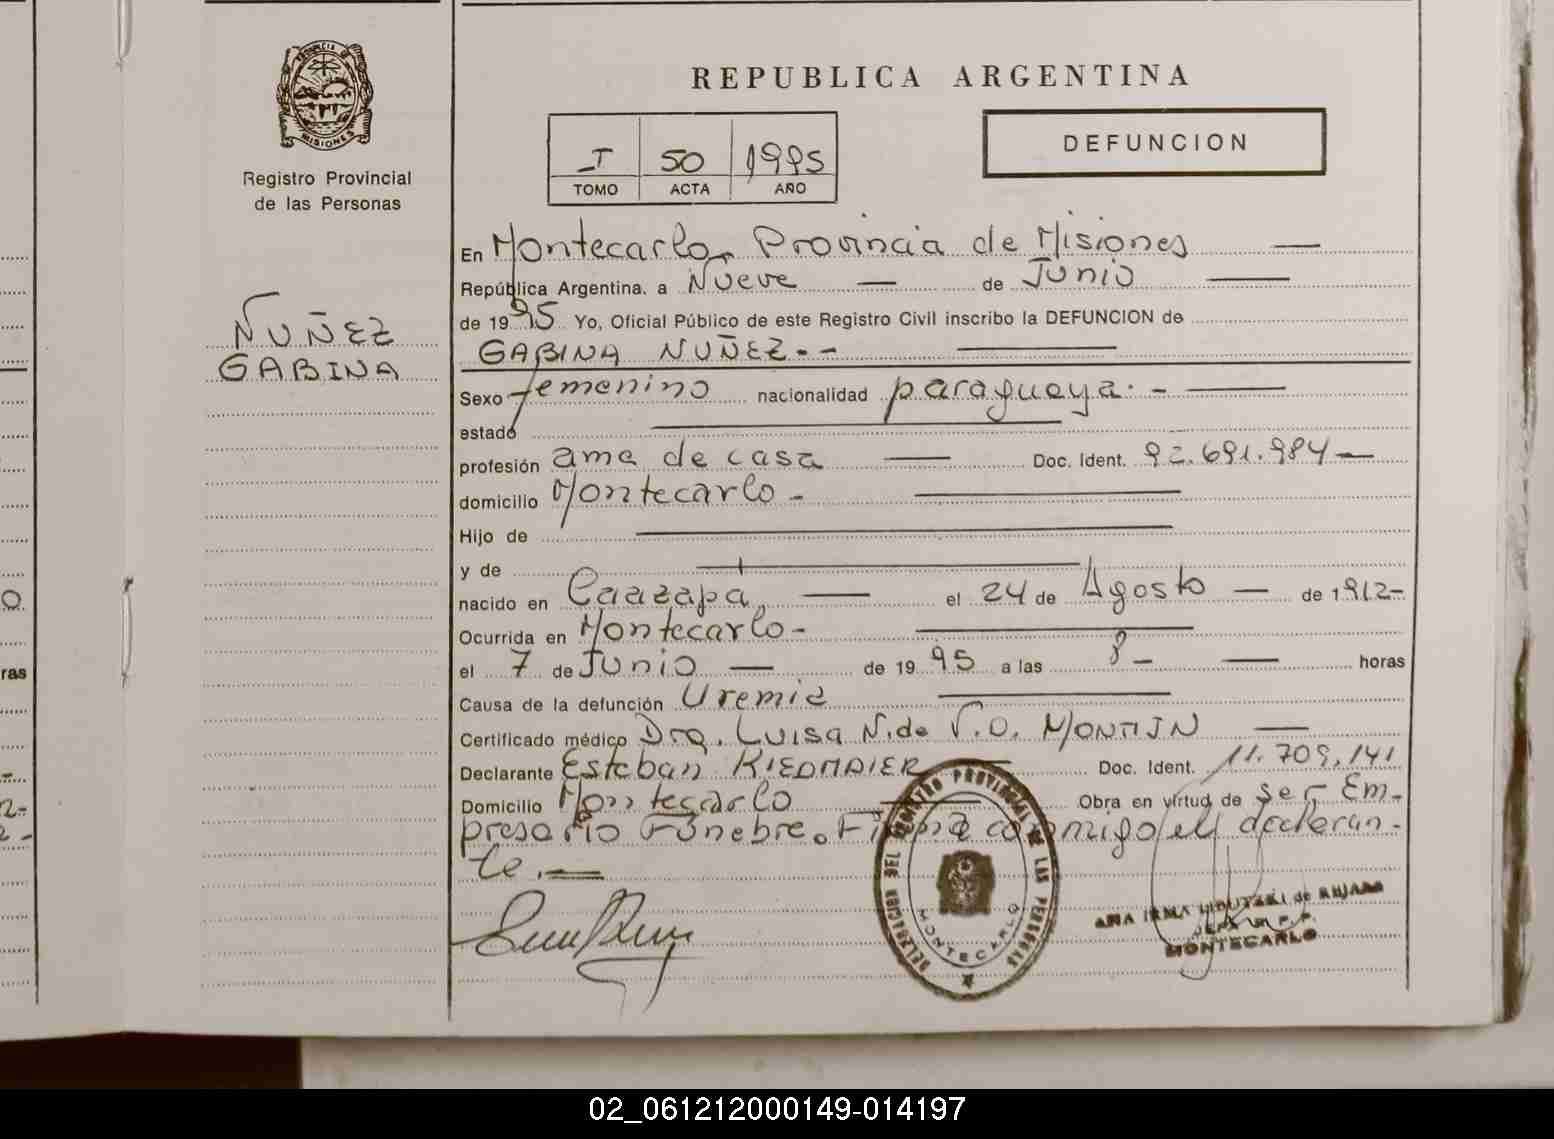 PROVINCIA DE
MISIONES
Registro Provincial
de las Personas
NUÑEZ
GABINA
REPUBLICA ARGENTINA
I 50 1995
TOMO ACTA AÑO
DEFUNCION
En Montecarlo, Provincia de Misiones
República Argentina. a Nueve de Junio
de 1995 Yo, Oficial Público de este Registro Civil inscribo la DEFUNCION de
GABINA NUÑEZ.--
Sexo femenino nacionalidad paraguaya.-
estado
profesión ama de casa Doc. Ident. 92.691.984
domicilio Montecarlo-
Hijo de
y de
nacido en Caazapa, el 24 de Agosto de 1912-
Ocurrida en Montecarlo-
el 7 de Junio de 1995 a las 8- horas
Causa de la defunción Uremia
Certificado médico Dra. Luisa N. de V.O. MONTIN
Declarante Esteban RIEDMAIER Doc. Ident. 11.709,141
Domicilio Montecarlo Obra en virtud de ser Em-
presario Fúnebre. Firma conmigo el declaran-
te.
DELEGACION DEL REGISTRO PROVINCIAL DE LAS PERSONAS
MONTECARLO
ANA IRMA de
MONTECARLO
ras
02_061212000149-014197